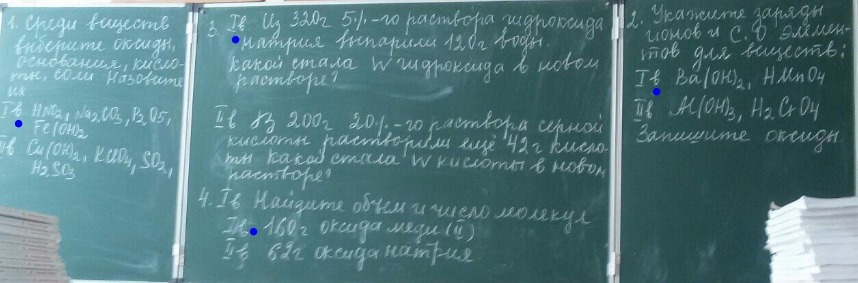 1. Среди веществ
выберите оксиды,
основания, кисло-
ты, соли. Назовите
их
Iв HNO2, Na2CO3, P2O5,
Fe(OH)2
IIв Ca(OH)2, KClO4, SO2,
H2SO3
3. Iв Из 320г 5%-го раствора гидроксида
натрия выпарили 120г воды.
Какой стала W гидроксида в новом
растворе?
IIв В 200г 20%-го раствора серной
кислоты растворили ещё 42г кисло-
ты какой стала W кислоты в новом
растворе?
4. Iв Найдите объём и число молекул
Iв 160г оксида меди (II)
IIв 62г оксида натрия
2. Укажите заряды
ионов и С.О. элемен-
тов для веществ:
Iв Ba(OH)2, HMnO4
IIв Al(OH)3, H2CrO4
Запишите оксиды.